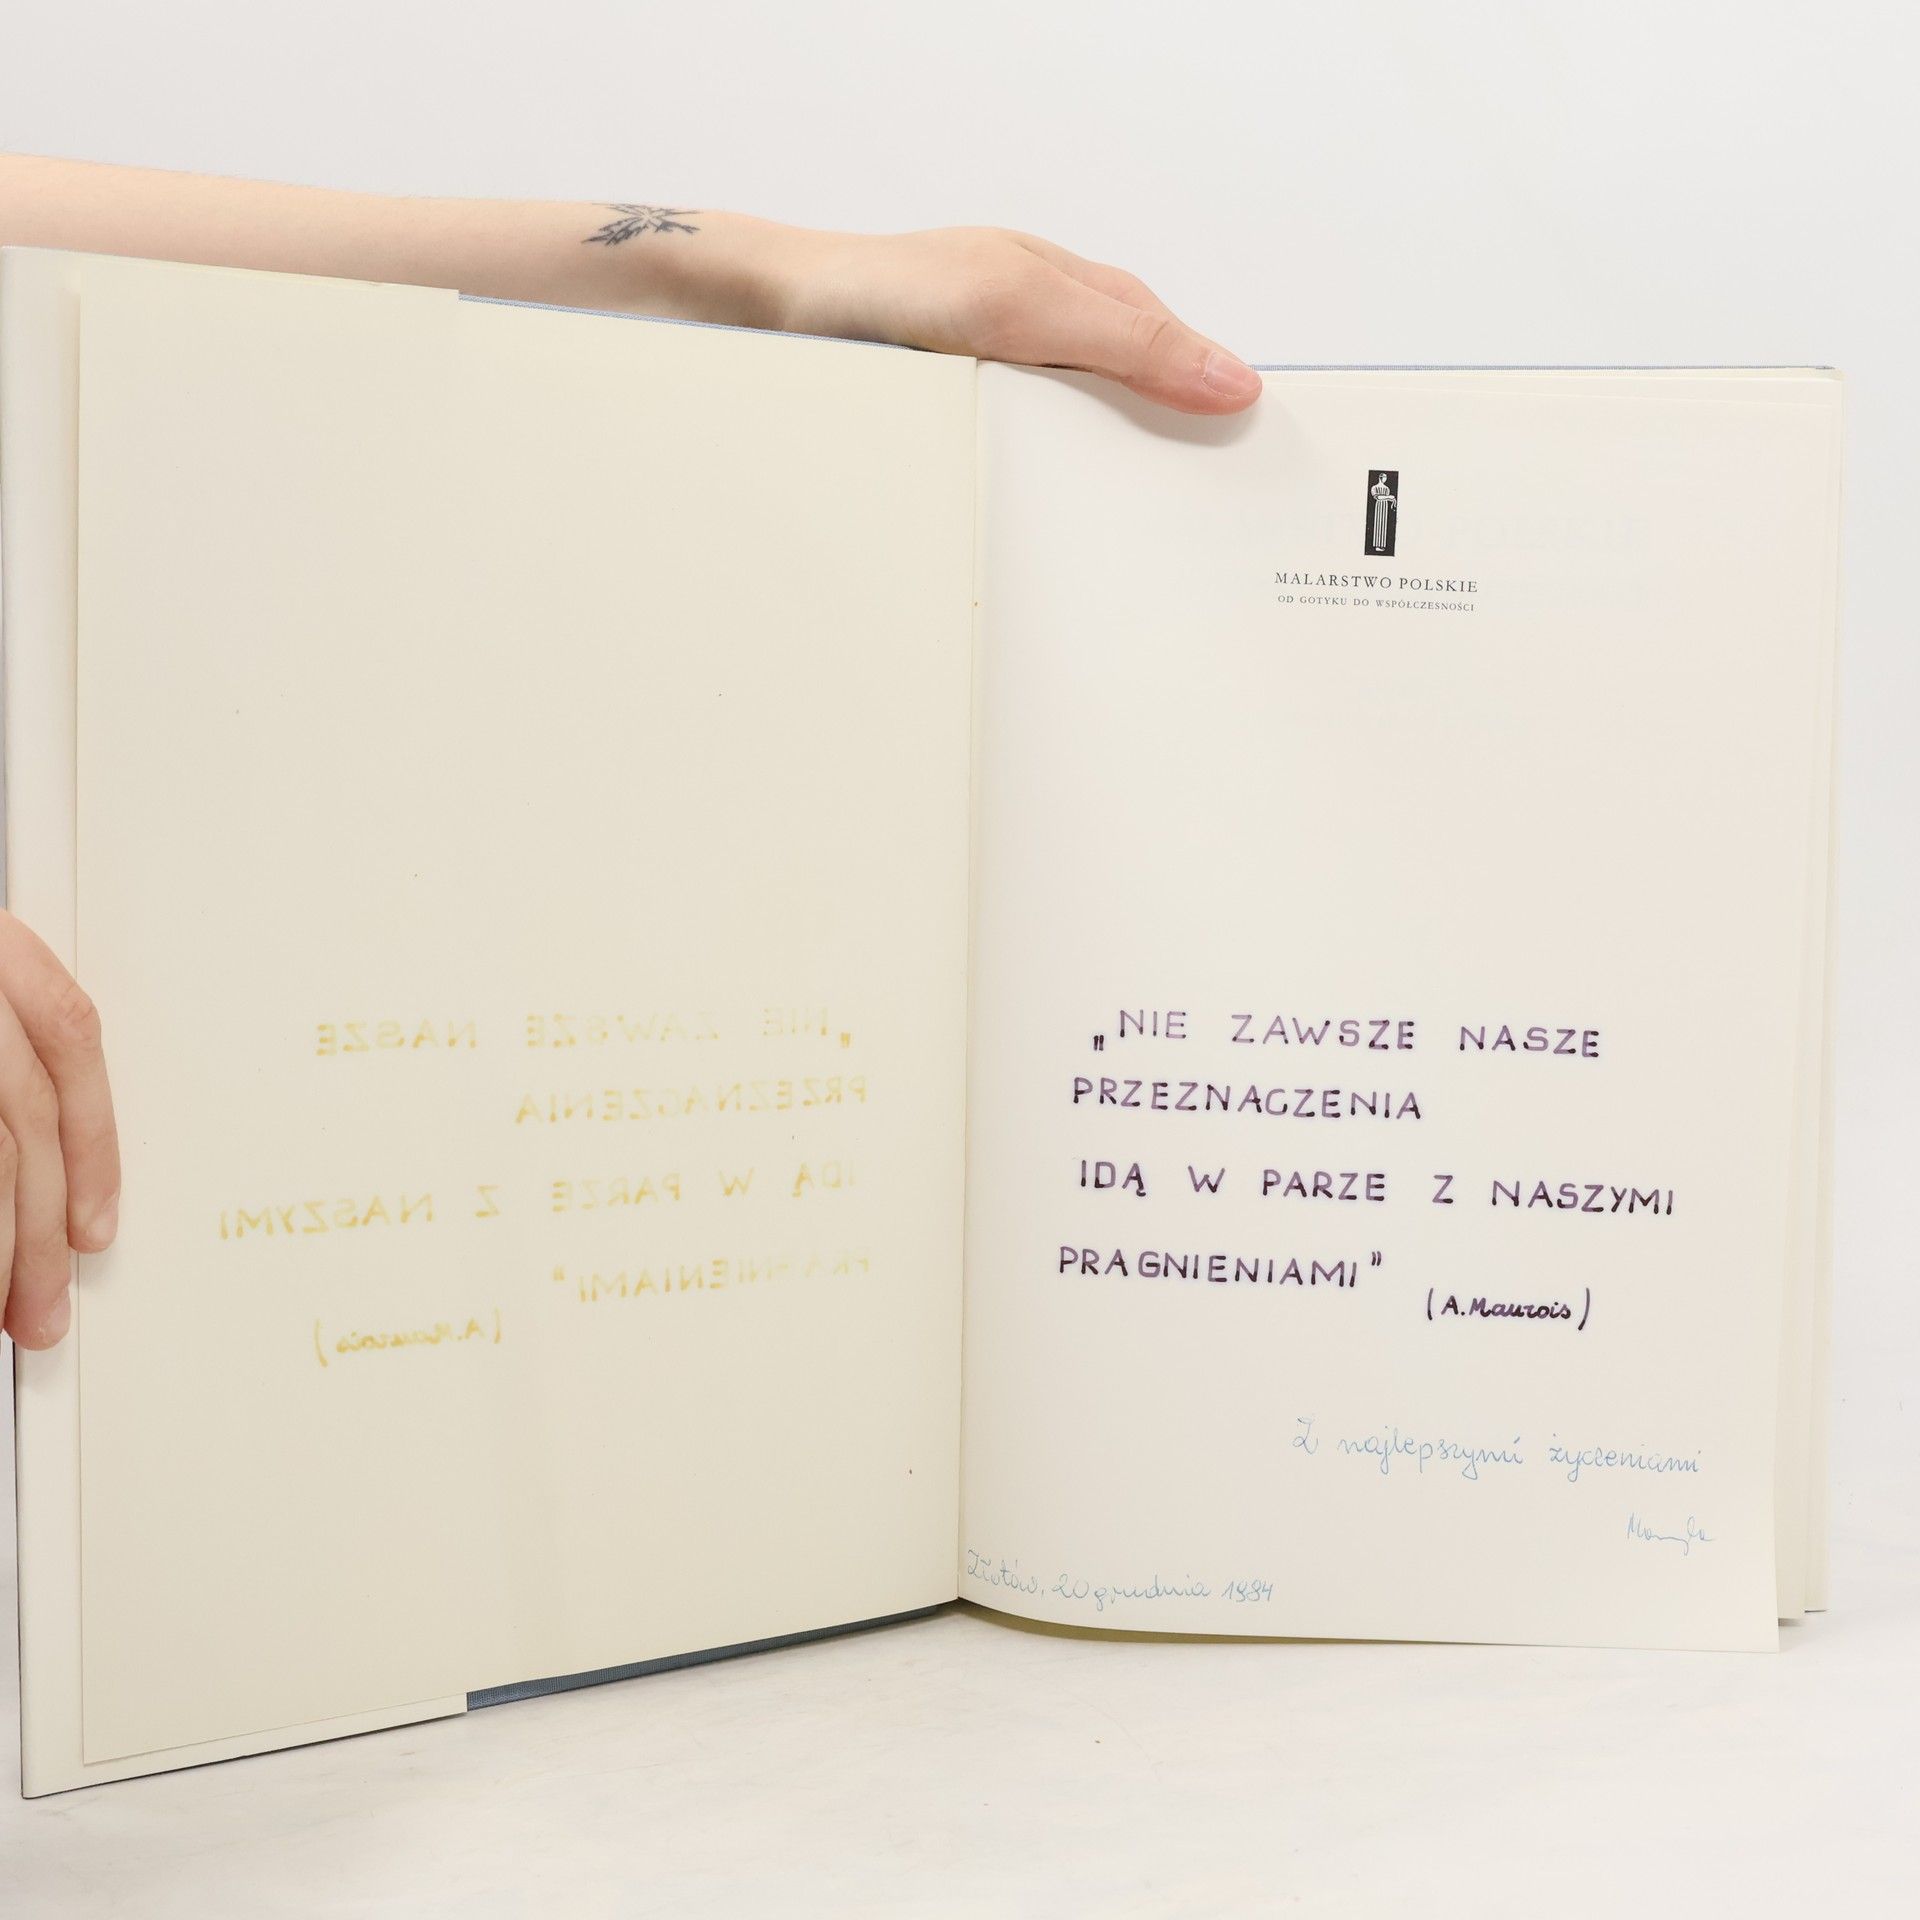 MALARSTWO POLSKIE
OD GOTYKU DO WSPÓŁCZESNOŚCI
„NIE ZAWSZE NASZE
PRZEZNACZENIA
IDĄ W PARZE Z NASZYMI
PRAGNIENIAMI”
(A. Maurois)
Z najlepszymi życzeniami
Złotów, 20 grudnia 1984